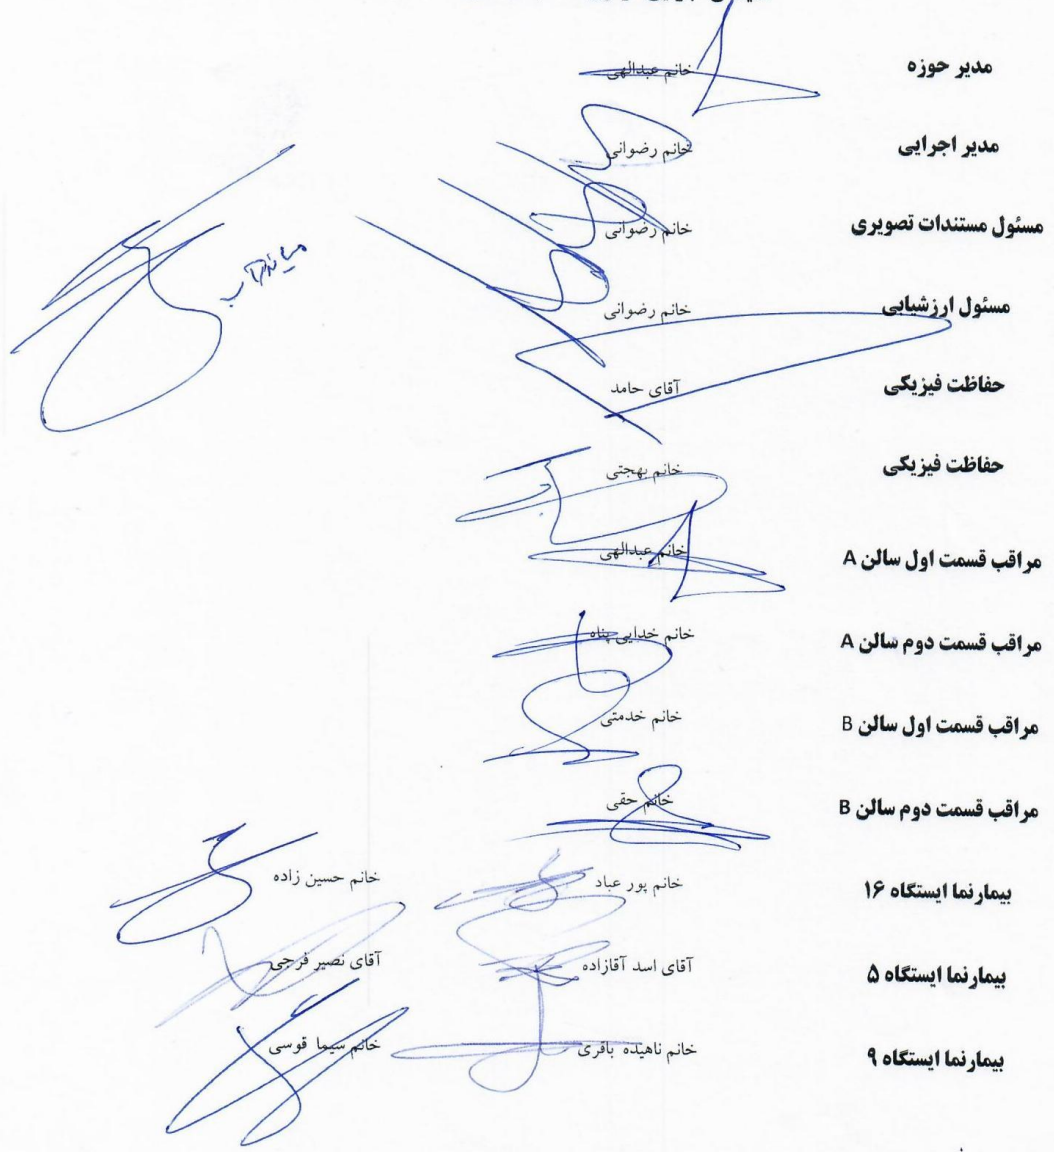 مدیر حوزه خانم عبدالهی
مدیر اجرایی خانم رضوانی
مسئول مستندات تصویری خانم رضوانی
مسئول ارزشیابی خانم رضوانی
حفاظت فیزیکی آقای حامد
حفاظت فیزیکی خانم بهجتی
مراقب قسمت اول سالن A خانم عبدالهی
مراقب قسمت دوم سالن A خانم خدایی پناه
مراقب قسمت اول سالن B خانم خدمتی
مراقب قسمت دوم سالن B خانم حقی
بیمارنما ایستگاه ۱۶ خانم پور عباد خانم حسین زاده
بیمارنما ایستگاه ۵ آقای اسد آقازاده آقای نصیر فرجی
بیمارنما ایستگاه ۹ خانم ناهیده باقری خانم سیما قوسی